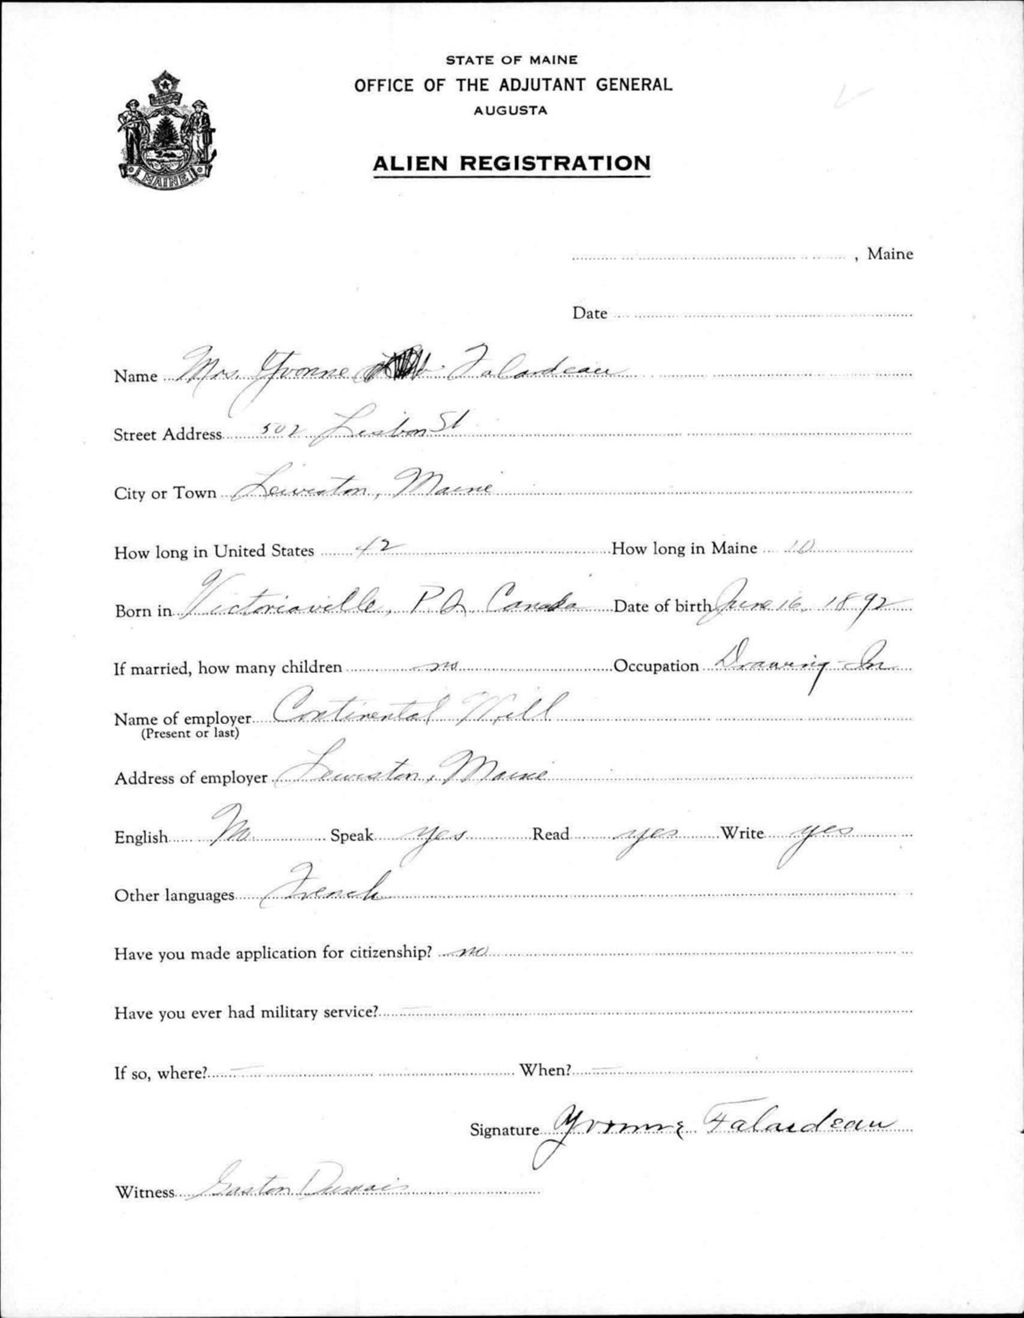 STATE OF MAINE
OFFICE OF THE ADJUTANT GENERAL
AUGUSTA
ALIEN REGISTRATION
MAINE
, Maine
Date
Name Mrs. Yvonne Falardeau
Street Address 502 Lisbon St
City or Town Lewiston, Maine
How long in United States 42 How long in Maine 10
Born in Victoriaville, P.Q. Canada Date of birth June 16, 1892
If married, how many children no Occupation Drawing-In
Name of employer Continental Mill
(Present or last)
Address of employer Lewiston, Maine
English No. Speak yes Read yes Write yes
Other languages French
Have you made application for citizenship? no
Have you ever had military service? —
If so, where? — When? —
Signature Yvonne Falardeau
Witness Gaston Dumais